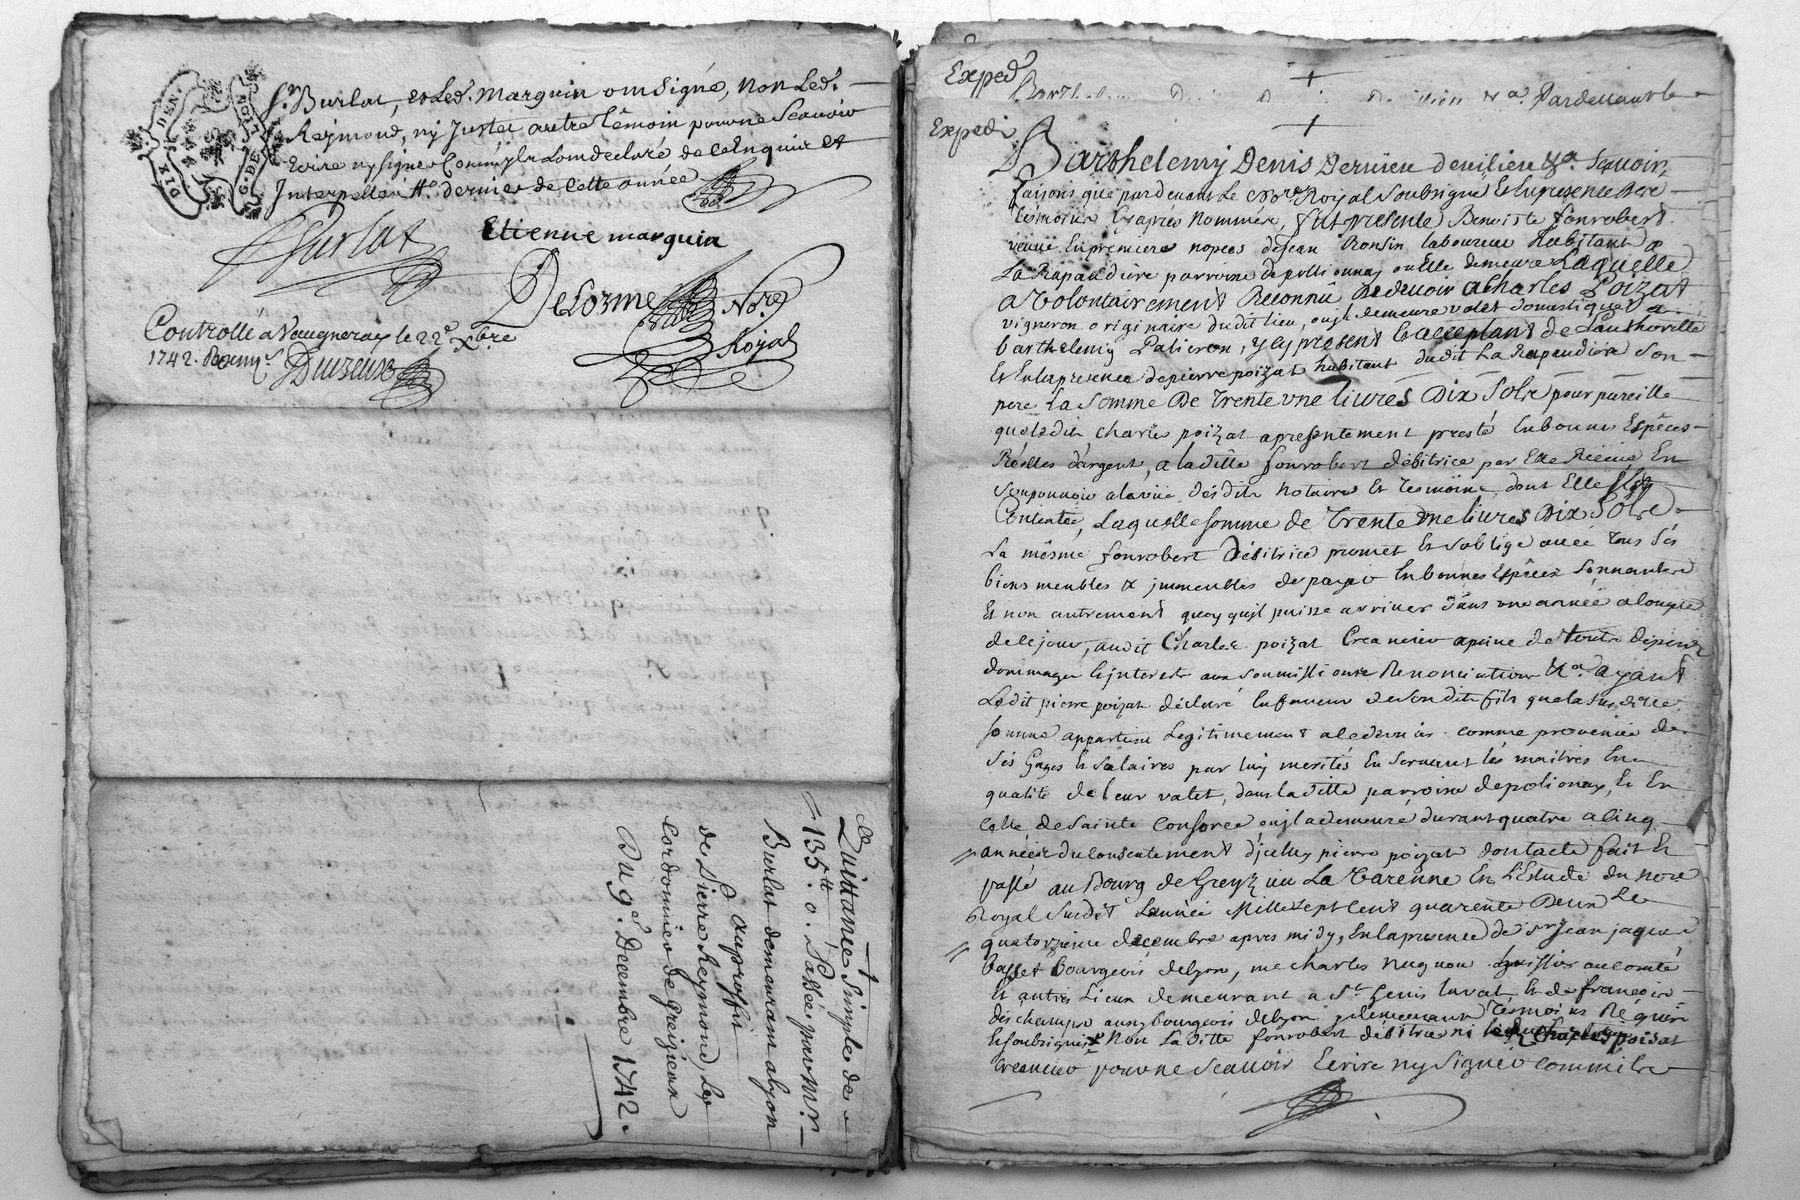 Sr. Burlat, et Led. Marguin ont Signé, non Led.
Reymond, ny Juste autre témoin pour ne Scavoir
Ecrire ny Signer Comm'yls ont declaré de ce Enquis et
Interpellés. Ne. dernier de Cette année
GEN. DE LYON
DIX DEN.
Burlat
Etienne marguin
Delorme Nore.
Royal
Controllé a Vaugneray le 22e. Xbre
1742.
Duizeux
Quittance Simple de
135.tt 0. Passée par Mr.
Burlat demeurant a lyon
au proffit
de Pierre Reymond, Me
Cordonnier de Greizieu
Du 9e. Decembre 1742.
Exped
Pardevant le
Expedié
Barthelemy Denis Dervieu de vilieu &a. Scavoir
faisons que pardevant Le Nore. Royal Soubsigné Et en presence des
tesmoins Cy apres nommés, fut presente Benoiste fonrobert
veuve En premieres nopces de Jean Ronsin laboureur habitant a
La Rapaudiere parroisse de pollionnay ou Elle demeure Laquelle
a Volontairement Reconnû de devoir a Charles Poizat
vigneron originaire dudit lieu, ou jl demeure valet domestique a
barthelemy Palieron, yCy present Et acceptant de L'authorité
Et En la presence de pierre poizat habitant dudit La Rapaudiere Son
pere La Somme De Trente vne livres Dix Sols pour pareille
que ledit Charles poizat a presentement presté En bonnes Espêces
Réelles d'argent, a la ditte fonrobert débitrice par Elle Reçeüe En
Son pouvoir a la vüe desdits notaire Et tesmoins dont Elle s'est
Contentée, Laquelle somme de Trente vne livres Dix Sols
La même fonrobert débitrice promet Et s'oblige avec tous Ses
biens meubles & jmmeubles de payer En bonnes Espêces Sonnantes
Et non autrement quoy qu'jl puisse arriver dans une année a Compter
de Ce jour, audit Charles poizat Creancier a peine de toutes dépens
dommages Et jnterests aux soumissions Renonciations &a. ayant
Ledit pierre poizat déclaré En faveur de son dit fils que la Susditte
somme appartient Legitimement a ce dernier comme provenüe de
Sés Gages Et Salaires par luy merités En Servant Sés maitres En
qualité de leur valet, dans la ditte parroisse de polionay, Et En
Celle de Sainte Consorce ou jl a demeuré durant quatre a Cinq
années du Consentement d'jcelluy pierre poizat dont acte fait Et
passé au Bourg de Greyzieu La Varenne En L'Estude du nore
Royal Susdit L'année Mille Sept Cent quarente Deux Le
quatorzieme decembre apres midy, En la presence de Sr. Jean jaques
basset bourgeois de lyon, me Charles nugnon huissier au comté
Et autres Lieux demeurant a St. Genis Laval, Et de françois
deschamps aussy bourgeois de lyon y demeurant Tesmoins Requis
Et soubsignés & Non La ditte fonrobert débitrice ni le dit Charles poizat
Creancier pour ne Scauoir Ecrire ny Signer comm'ils